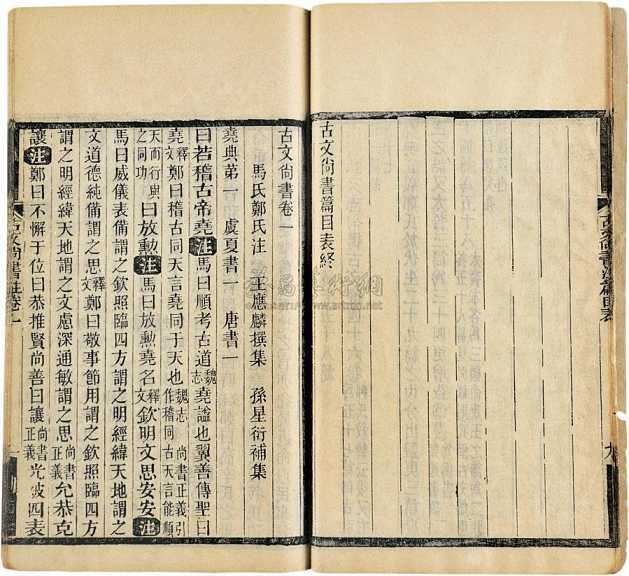 古文尚書篇目表終
古文尚書卷一
馬氏鄭氏注 王應麟撰集 孫星衍補集
堯典第一 虞夏書一 唐書一
曰若稽古帝堯注馬曰順考古道魏志堯謚也翼善傳聖曰
堯釋文鄭曰稽古同天言堯同于天也魏志 尚書正義引作稽同古天言能順
天而行與之同功曰放勳注馬曰放勳堯名釋文欽明文思安安注
馬曰威儀表備謂之欽照臨四方謂之明經緯天地謂之
文道德純備謂之思釋文鄭曰敬事節用謂之欽照臨四方
謂之明經緯天地謂之文慮深通敏謂之思尚書正義允恭克
讓注鄭曰不懈于位曰恭推賢尚善曰讓尚書正義光被四表
古文尚書注卷一